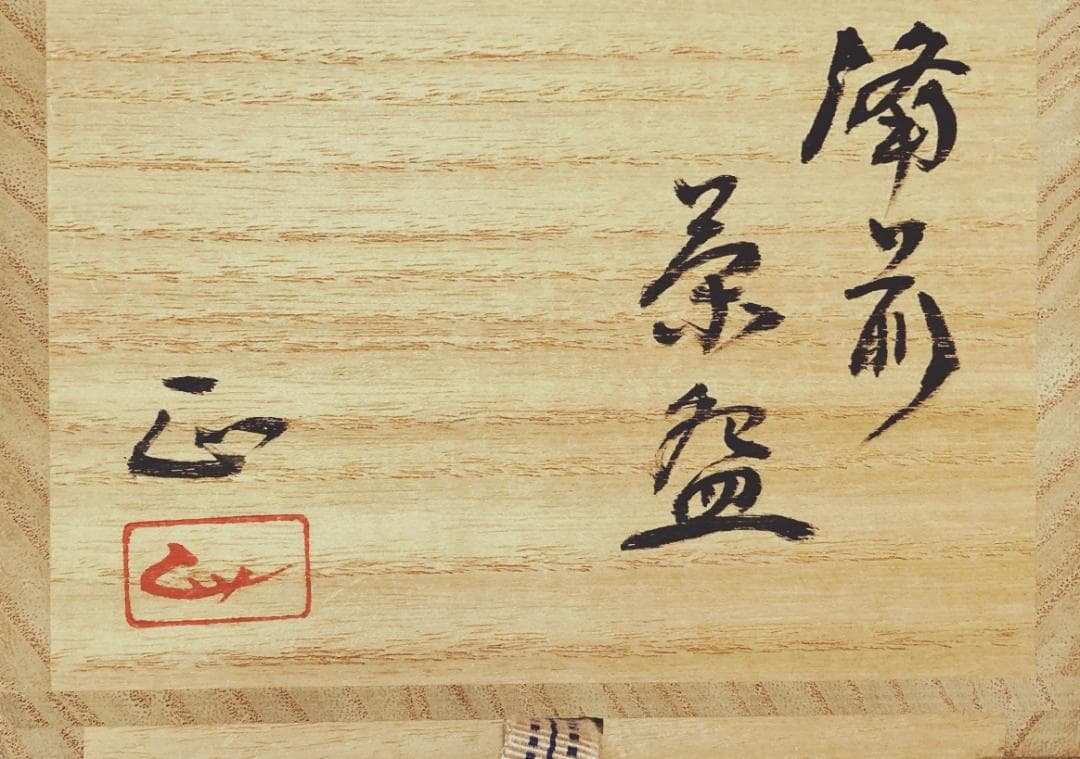 備前
茶盌
正